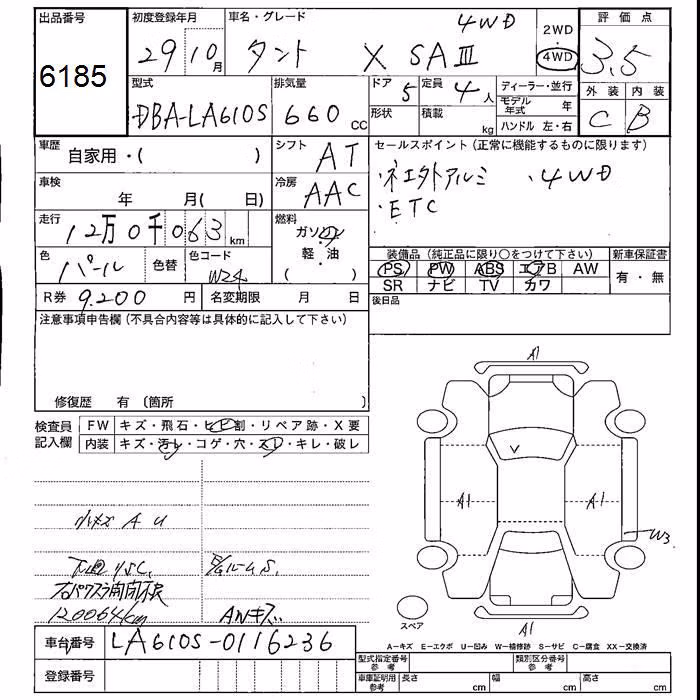 出品番号 6185
初度登録年月 29 10月
車名・グレード タント X SAⅢ 4WD
2WD
4WD
評価点 3.5
外装 内装
C B
型式 DBA-LA610S
排気量 660 cc
ドア 5
形状
定員 4人
積載 kg
ディーラー・並行
モデル年式 年
ハンドル 左・右
車歴 自家用・( )
シフト AT
セールスポイント(正常に機能するものに限ります)
・4WD
・ETC
車検 年 月( 日)
冷房 AAC
走行 12万0千063km
燃料 ガソリン
軽・油
( )
色 パール
色替
色コード W24
R券 9,200円
名変期限 月 日
装備品(純正品に限り〇をつけて下さい)
PS PW ABS エアB AW
SR ナビ TV カワ
新車保証書
有・無
後日品
注意事項申告欄(不具合内容等は具体的に記入して下さい)
修復歴 有 〔箇所 〕
検査員記入欄
FW キズ・飛石・ヒビ割・リペア跡・X要
内装 キズ・汚レ・コゲ・穴・スレ・キレ・破レ
小キズ A U
下廻りSC.
120064km
A1
A1
A1
W3
A1
スペア
A－キズ E－エクボ U－凹み W－補修跡 S－サビ C－腐食 XX－交換済
車台番号 LA610S-0116236
登録番号
型式指定番号 参考
類別区分番号 参考
車庫証明用 参考 長さ cm 幅 cm 高さ cm